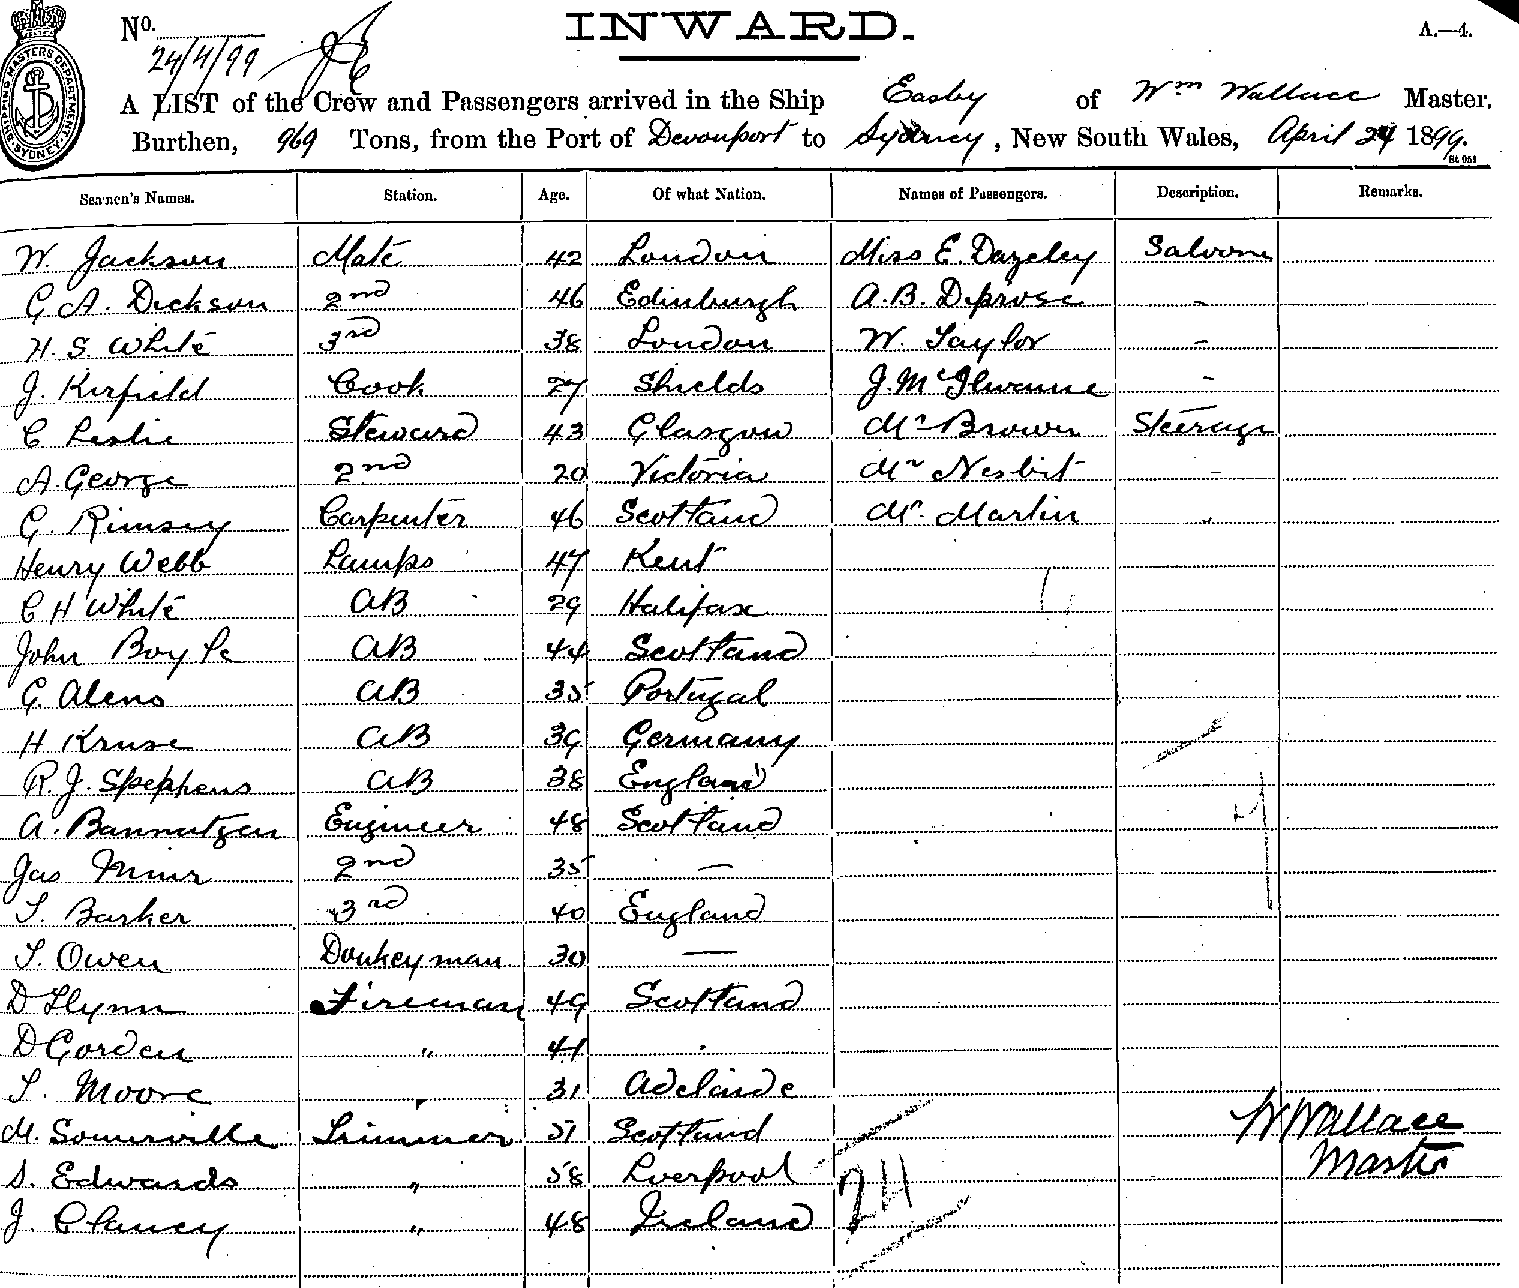 No.
24/4/99
INWARD.
A.—4.
SHIPPING MASTERS DEPARTMENT SYDNEY
A LIST of the Crew and Passengers arrived in the Ship Easby of Wm Wallace Master,
Burthen, 969 Tons, from the Port of Devonport to Sydney, New South Wales, April 24 1899.
St 051
Seamen's Names. Station. Age. Of what Nation. Names of Passengers. Description. Remarks.
W. Jackson Mate 42 London Miss E. Dazeley Saloon
G A. Dickson 2nd 46 Edinburgh A.B. Deprose -
H. S. White 3rd 38 London W. Taylor -
J. Kirfield Cook 27 Shields J. McIlwaine -
C. Leslie Steward 43 Glasgow Mr Brown Steerage
A. George 2nd 20 Victoria Mr Nesbit -
G. Rimsey Carpenter 46 Scotland Mr. Martin "
Henry Webb Lamps 47 Kent
C H White AB 29 Halifax
John Boyle AB 44 Scotland
G. Alens AB 35 Portugal
H Kruse AB 39 Germany
R. J. Stephens AB 38 England
A. Bannutgen Engineer 48 Scotland
Jas Muir 2nd 35 —
T. Barker 3rd 40 England
T. Owen Donkeyman 30 —
D Flynn Fireman 49 Scotland
D Gorden " 41 "
T. Moore " 31 Adelaide
M. Somerville Trimmer 51 Scotland
S. Edwards " 58 Liverpool
J. Clancy " 48 Ireland
W Wallace
Master
7
24